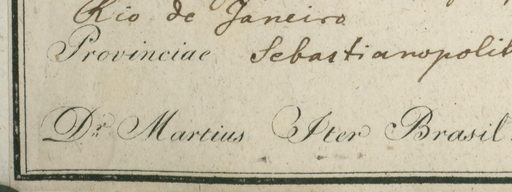 Rio de Janeiro
Provinciae Sebastianopolit
Dr. Martius Iter Brasil.